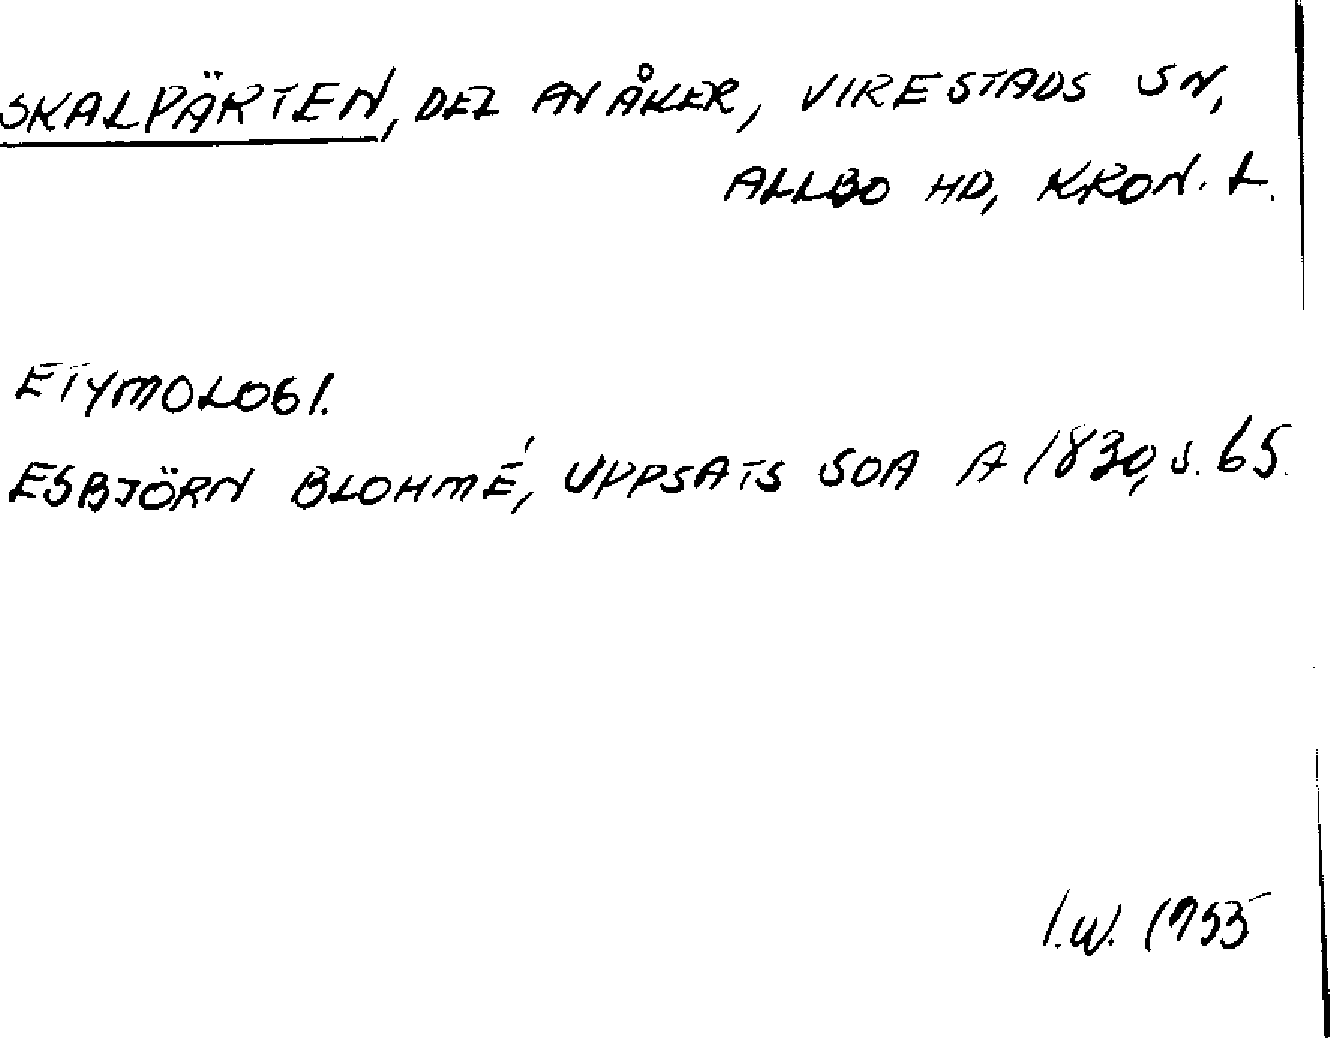 SKALPÄRTEN, DEL AV ÅKER, VIRESTADS SN,
ALLBO HD, KRON. L.
ETYMOLOGI.
ESBJÖRN BLOHMÉ, UPPSATS SOA A 1830, S. 65.
I.W. 1955